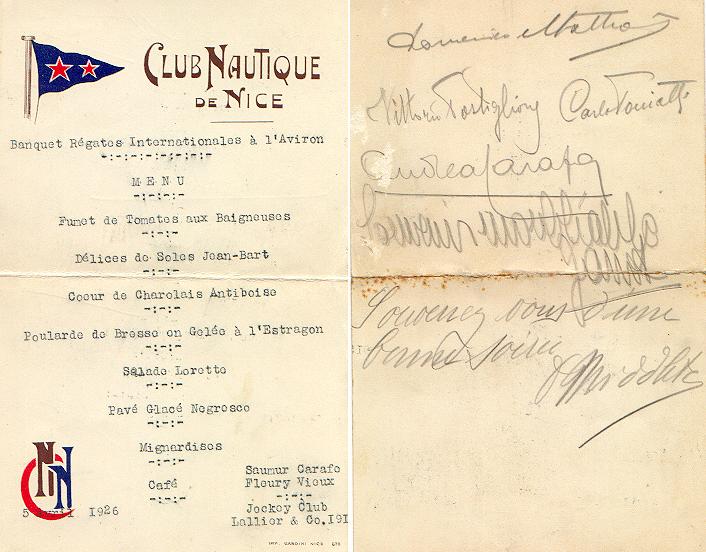 CLUB NAUTIQUE
DE NICE
Banquet Régates Internationales à l'Aviron
-:-:-:-:-:-:-:-
M E N U
-:-:-:-
Fumet de Tomates aux Baigneuses
-:-:-
Délices de Soles Jean-Bart
-:-:-
Coeur de Charolais Antiboise
-:-:-
Poularde de Bresse en Gelée à l'Estragon
-:-:-
Salade Lorette
-:-:-
Pavé Glacé Negresco
-:-:-
Mignardises
-:-:-
Café
-:-:-
Saumur Carafe
Fleury Vieux
-:-:-
Jockey Club
Lallier & Co.191
CNN
5 Avril 1926
IMP. GANDINI NICE
Domenico
Vittorio Carlo
Andrea Carafa
Souvenir
Souvenez vous d'une
bonne soirée